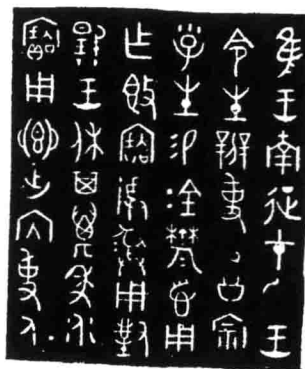 隹王南征才王
令生辨事公宗
小子生易金鬱鬯用
乍簋寶尊彝用對
揚王休其萬年永
寶用鄉出内事人